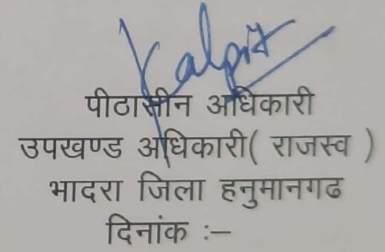 Kalpit
पीठासीन अधिकारी
उपखण्ड अधिकारी( राजस्व )
भादरा जिला हनुमानगढ
दिनांक :–